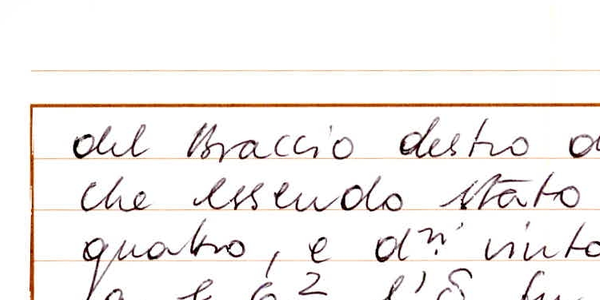 del Braccio destro
che essendo stato
quatro, e d.ⁿⁱ vinto